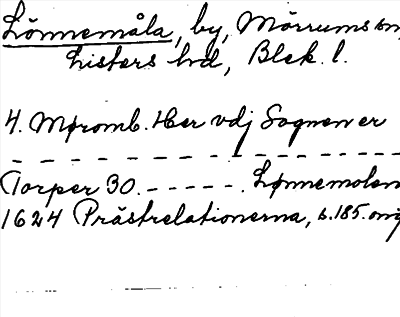 Lönnemåla, by, Mörrums sn,
Listers hd, Blek. l.
4. Møromb. Her vdj Sognen er
Torper 30. - - - - - . Lønnemolen
1624 Prästrelationerna, s. 185. orig